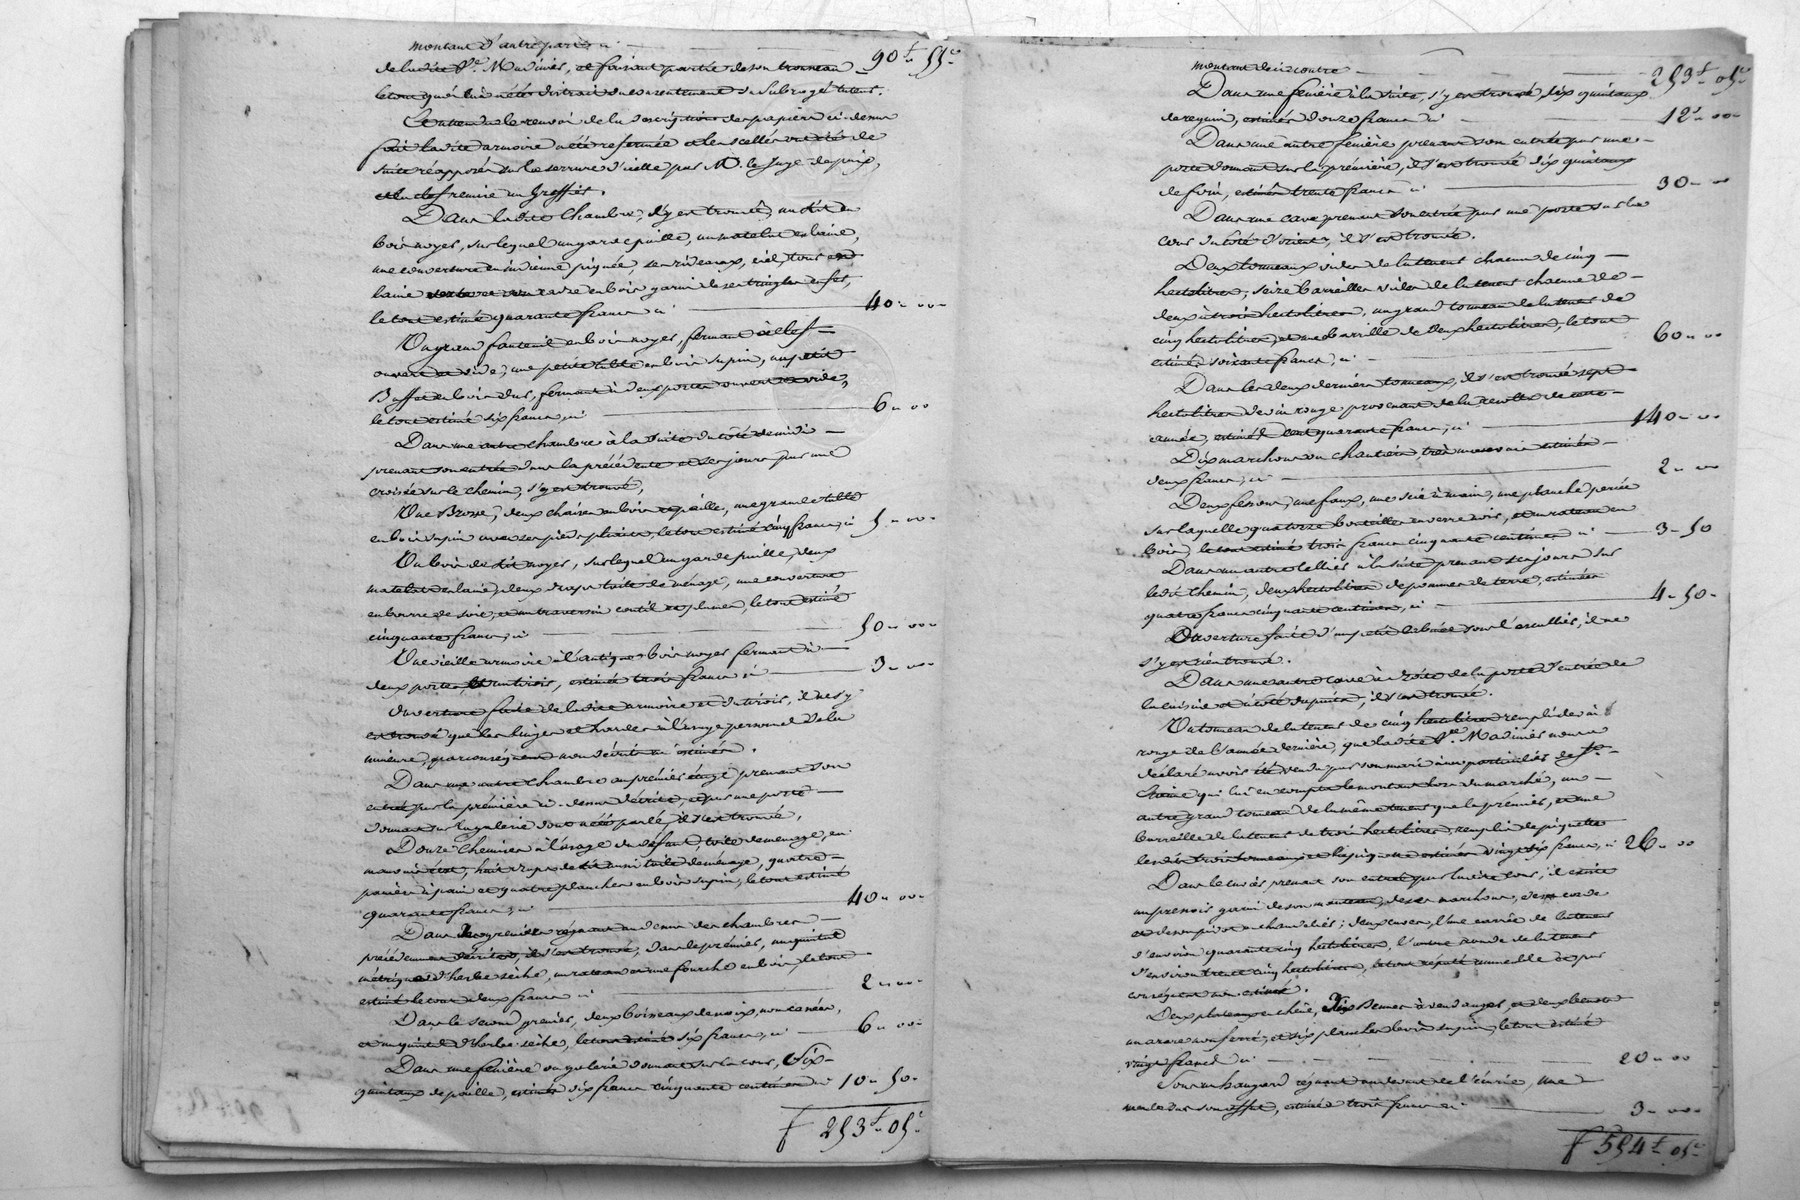 montant d'autre part, ci — 90f 55c
de ladite De. Madinier, et faisant partie de son trousseau
le tout quoi lui a été distrait du consentement du subrogé tuteur.
le renvoi de la description des papiers ci-dessus
fait ladite armoire a été refermée et les scellés ont été de
suite réapposés sur la serrure d'icelle par M. le Juge de paix,
et la clef remise au Greffier.
Dans ladite Chambre, s'y est trouvé, un lit en
bois noyer, sur lequel un garde paille, un matelat en laine,
une couverture en indienne piquée, ses rideaux, ciel, tour en
laine cadre en bois garni de ses tringles en fer,
le tout estimé quarante francs ci — 40 - 00 -
Un grand fauteuil en bois noyer, fermant à clef —
ouvert et vide; une petite table en bois sapin, un petit
Buffet en bois dur, fermant à deux portes ouvert et vide,
le tout estimé six francs, ci — 6 - 00
Dans une autre chambre à la suite du côté de midi —
prenant son entrée dans la précédente et ses jours par une
croisée sur le chemin, s'y est trouvé,
Une Brosse, deux chaises en bois et paille, une grande table
en bois sapin avec ses pieds pliants, le tout estimé cinq francs, ci 5 - 00 -
Un bois de lit noyer, sur lequel un garde paille, deux
matelats en laine, deux draps toile de ménage, une couverture
en bourre de soie, et un traversin coutil et plumes, le tout estimé
cinquante francs, ci — 50 - 00 -
Une vieille armoire à l'antique bois noyer fermant à —
deux portes, et un tiroir, estimée trois francs ci — 3 - 00 -
Ouverture faite de ladite armoire et du tiroir, il ne s'y
est trouvé que des linges et hardes à l'usage personnel de la
mineure, par conséquent non décrits ni estimés.
Dans une autre chambre au premier étage prenant son
entrée par la première ci-dessus décrite, et par une porte —
donnant sur la galerie dont a été parlé, il s'est trouvé,
Douze Chemises à l'usage du défunt, toile de ménage, en
mauvais état, huit draps de lit aussi toile de ménage, quatre —
paniers à pain et quatre planches en bois sapin, le tout estimé
quarante francs, ci — 40 - 00 -
Dans les greniers régnant au dessus des chambres —
précédemment décrites, il s'est trouvé, dans le premier, un quintal
métrique d'herbe sèche, un rateau et une fourche en bois, le tout —
estimé le tout deux francs ci — 2 - 00 -
Dans le second grenier, deux boisseaux de noix, non cassées,
et un quintal d'herbe sèche, le tout estimé six francs, ci — 6 - 00 -
Dans une fenière ou galerie donnant sur la cour, Six —
quintaux de paille, estimés dix francs cinquante centimes ci 10 - 50 -
f 253f 05c
montant de ci contre — 253f 05c
Dans une fenière à la suite, s'y est trouvé, six quintaux
de regain, estimés douze francs ci — 12 - 00 -
Dans une autre fenière prenant son entrée par une —
porte donnant sur la première, il s'est trouvé dix quintaux
de foin, estimés trente francs ci — 30 - 00
Dans une cave prenant son entrée par une porte sur la
cour du côté d'orient, il s'est trouvé.
Deux tonneaux vides de la tenue chacun de cinq —
hectolitres, seize barreilles vides de la tenue chacune de —
deux à trois hectolitres, un grand tonneau de la tenue de
cinq hectolitres, et une barrille de deux hectolitres, le tout
estimé soixante francs, ci — 60 - 00
Dans les deux derniers tonneaux, il s'est trouvé sept
hectolitres de vin rouge provenant de la récolte de cette —
année, estimés cent quarante francs, ci — 140 - 00
Dix marchons ou chantiers très mauvais estimés —
deux francs, ci — 2 - 00
Deux fessous, une faux, une scie à main, une planche percée
sur laquelle quatorze bouteilles en verre noir, et un rateau en
bois, le tout estimé trois francs cinquante centimes ci — 3 - 50
Dans un autre cellier à la suite prenant ses jours sur
ledit Chemin, deux hectolitres de pommes de terre, estimés
quatre francs cinquante centimes, ci — 4 - 50 -
Ouverture faite d'un petit caveau sous l'escalier, il ne
s'y est rien trouvé.
Dans une autre cave à côté de la porte d'entrée de
la cuisine et à côté du puits, il s'est trouvé.
Un tonneau de la tenue de cinq hectolitres rempli de vin
rouge de l'année dernière, que ladite De. Madinier nous a
déclaré avoir été vendu par son mari à un particulier de St.
qui lui en compte le montant lors du marché, un —
autre grand tonneau de la même tenue que le premier, et une
barreille de la tenue de trois hectolitres, remplis de piquette
lesdits trois tonneaux et la piquette estimés vingt six francs, ci 26 - 00
Dans le cuvier prenant son entrée par ladite cour, il existe
un pressoir garni de son manteau, de ses marchons, de sa corde
et de son pivot et chandelier; deux cuves, l'une carrée de la tenue
d'environ quarante cinq hectolitres, l'autre ronde de la tenue
d'environ trente cinq hectolitres, le tout réputé immeuble et par
conséquent non estimé.
Deux plateaux en chêne, six Bennes à vendanger, et deux bennots
un araire non ferré, et six planches bois sapin, le tout estimé
vingt francs ci — 20 - 00
Sous un hangard régnant au devant de l'écurie, une
meule sur son affut, estimée trois francs ci — 3 - 00 -
f 554f 05c